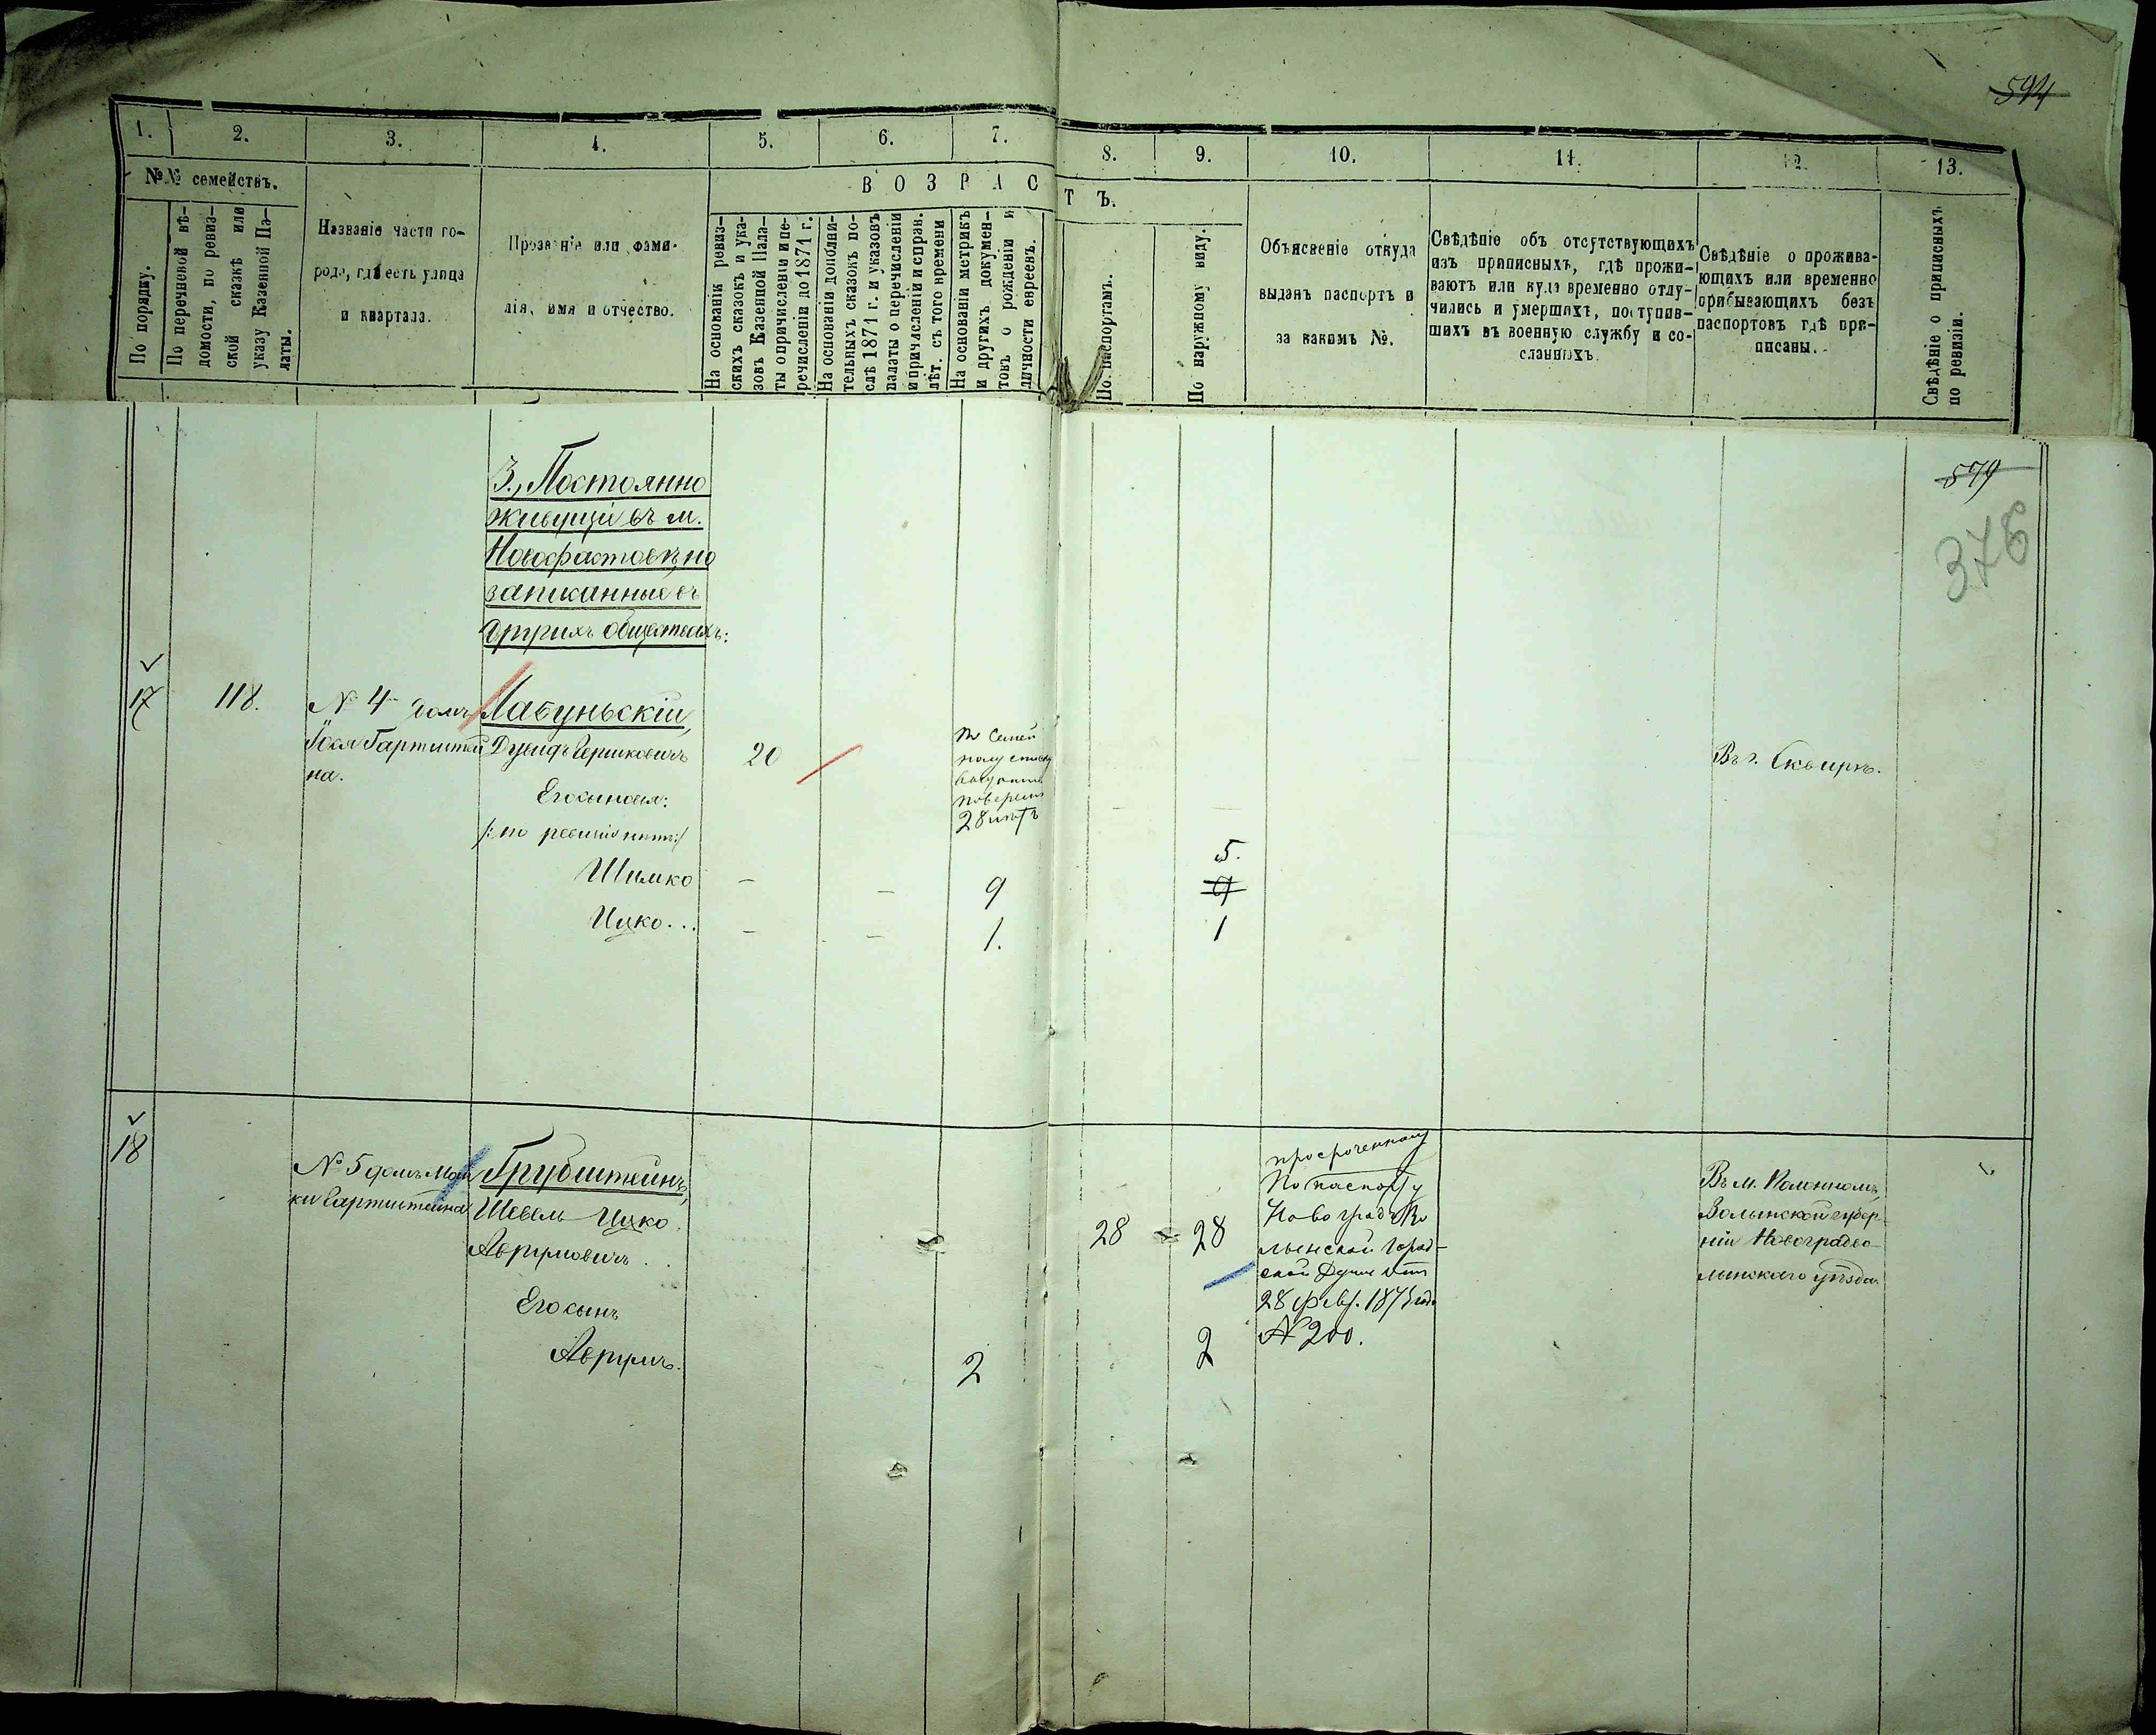 594
1. 2. 3. 4. 5. 6. 7. 8. 9. 10. 11. 12. 13.
№№ семействъ.
По порядку.
По перечневой вѣ-
домости, по ревиз-
ской сказкѣ или
указу Казенной Па-
латы.
Названіе части го-
рода, гдѣ есть улица
и квартала.
Прозваніе или фами-
лія, имя и отчество.
ВОЗРАСТЪ.
На основаніи ревиз-
скихъ сказокъ и ука-
зовъ Казенной Пала-
ты о причисленіи и пе-
речисленіи до 1871 г.
На основаніи дополни-
тельныхъ сказокъ по-
слѣ 1871 г. и указовъ
палаты о перечисленіи
и причисленіи и справ.
лѣт. съ того времени
На основаніи метрикъ
и другихъ докумен-
товъ о рожденіи и
личности евреевъ.
По паспортамъ.
По наружному виду.
Объясненіе откуда
выданъ паспортъ и
за какимъ №.
Свѣдѣніе объ отсутствующихъ
изъ приписныхъ, гдѣ прожи-
ваютъ или куда временно отлу-
чились и умершихъ, поступив-
шихъ въ военную службу и со-
сланныхъ.
Свѣдѣніе о прожива-
ющихъ или временно
прибывающихъ безъ
паспортовъ гдѣ при-
писаны.
Свѣдѣніе о приписныхъ
по ревизіи.
579
376
3., Постоянно
живущіе въ м.
Новофастовѣ, но
записанные въ
другихъ обществахъ:
17
118.
№ 4 домъ
Гартштей
на.
Лабунскій,
Дувидъ Гершковичъ
20
28 лѣтъ
Въ г. Сквирѣ.
Его сыновья:
/: по ревизіи нѣтъ :/
Шимко – – 9 5. 9
Ицко... – – 1. 1
18
№ 5 домъ Мош
ки Гартштейна
Грубштейнъ,
Шевель Ицко
Аврумовичъ . .
28 28
просроченному
По паспорту
Новоградъ Во
лынской Город-
ской Думы отъ
28 февр. 1875 года
№ 200.
Въ м. Полонномъ,
Волынской губер
ніи Новоградво-
лынскаго уѣзда.
Его сынъ
Аврумъ. 2 2